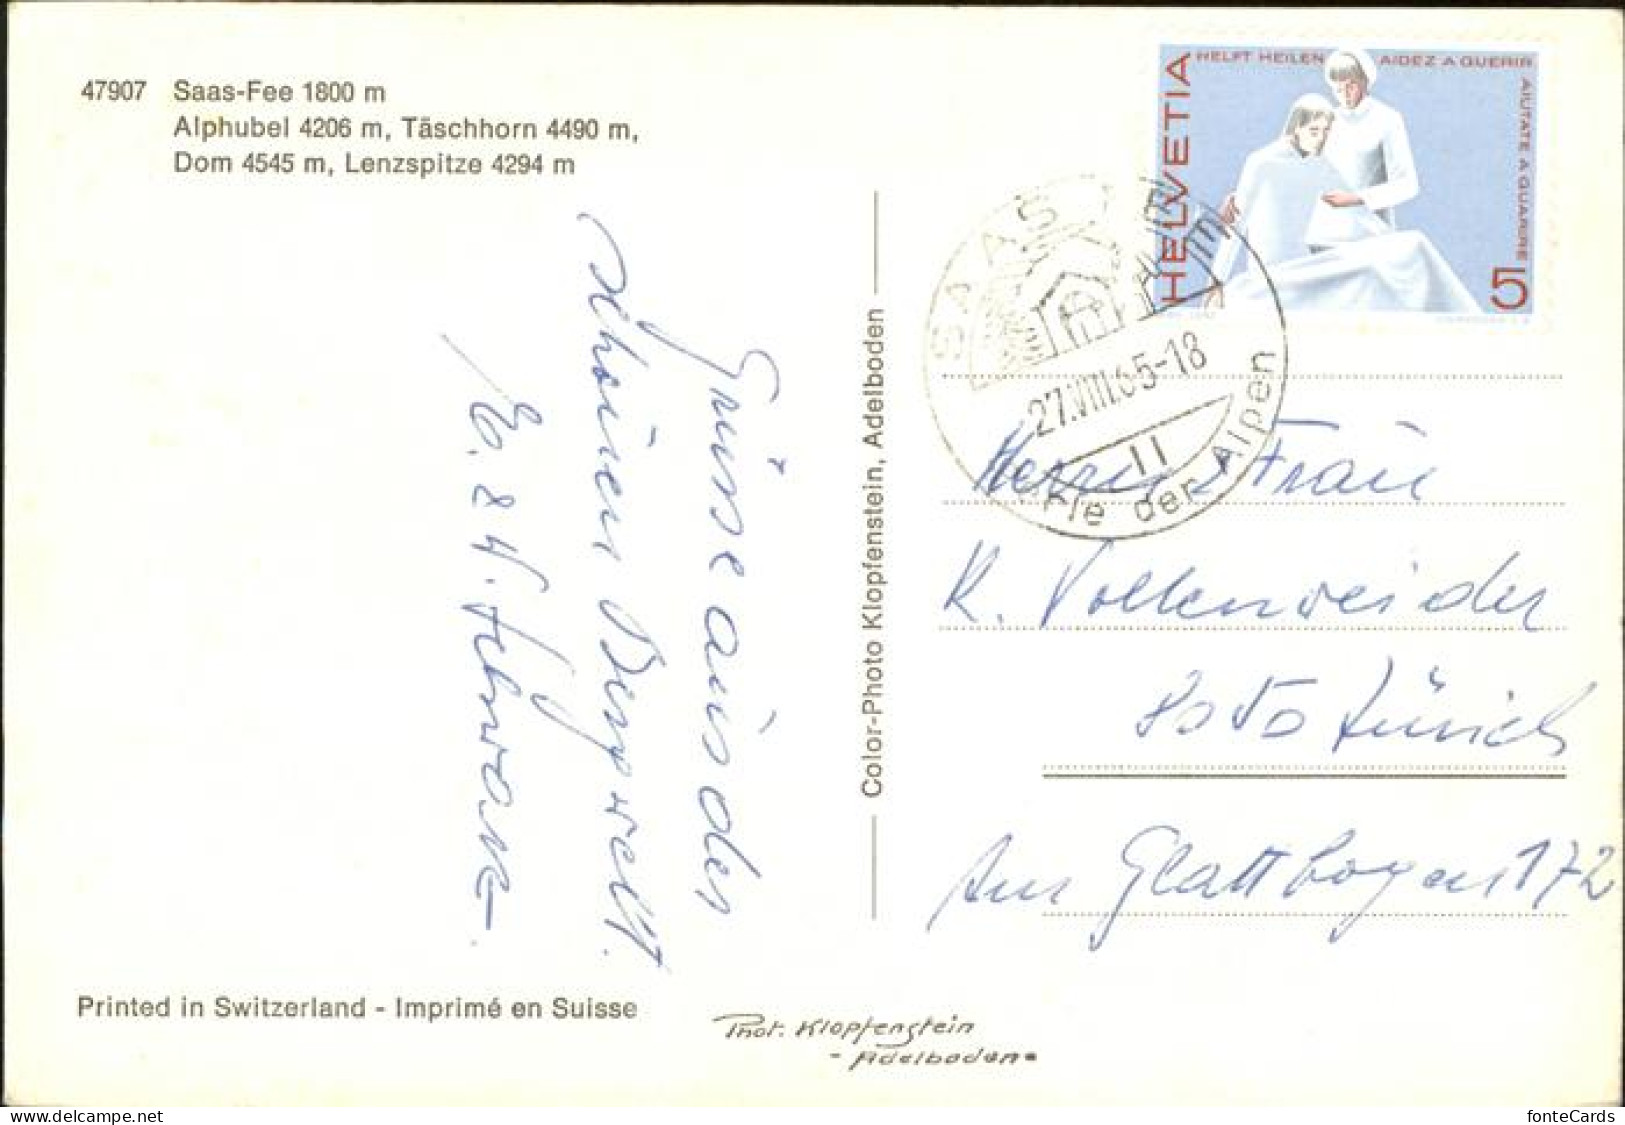 47907 Saas-Fee 1800 m
Alphubel 4206 m, Täschhorn 4490 m,
Dom 4545 m, Lenzspitze 4294 m
Grüsse aus der
schönen Bergwelt.
E. & H.
Printed in Switzerland - Imprimé en Suisse
Color-Photo Klopfenstein, Adelboden
Phot. Klopfenstein
- Adelboden
HELVETIA
HELFT HEILEN
AIDEZ A GUERIR
AIUTATE A GUARIRE
5
SAAS-FEE
27.VIII.65-18
Perle der Alpen
Herrn & Frau
K. Vollenweider
8050 Zürich
Am Glattbogen 172
fonteCards
www.delcampe.net